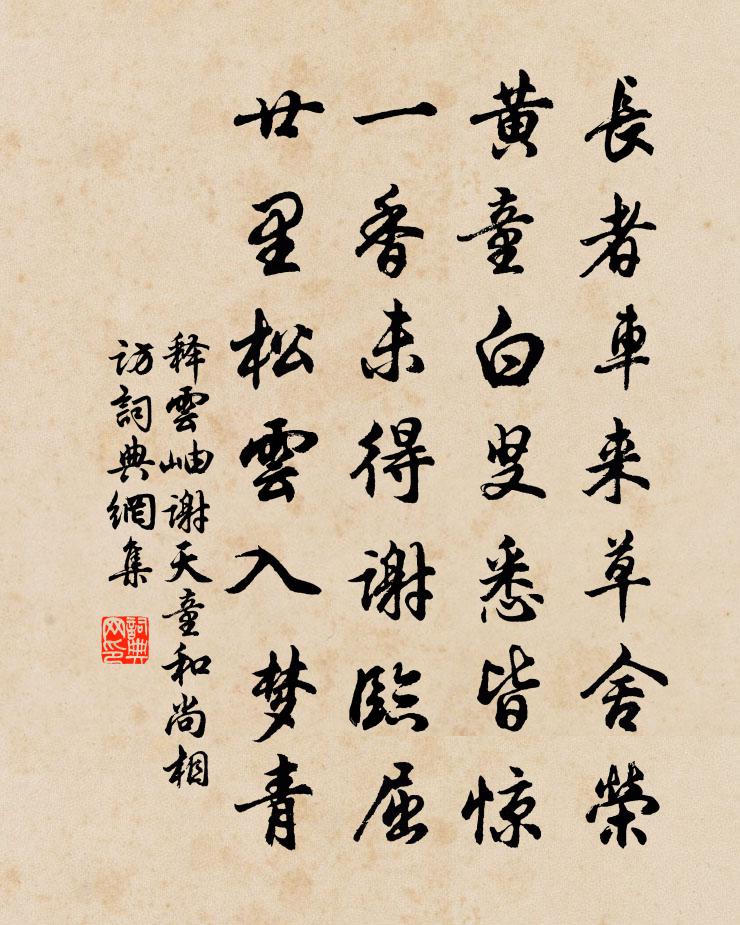 長者車来草舍榮
黃童白叟悉皆惊
一香未得謝臨屈
廿里松雲入梦青
释雲岫谢天童和尚相
访詞典網集
詞典
网印